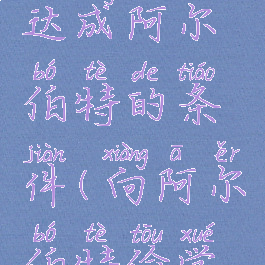 达成阿尔
bó tè de tiáo
伯特的条
jiàn xiàng ā ěr
件(向阿尔
bó tè tōu xué
伯特偷学